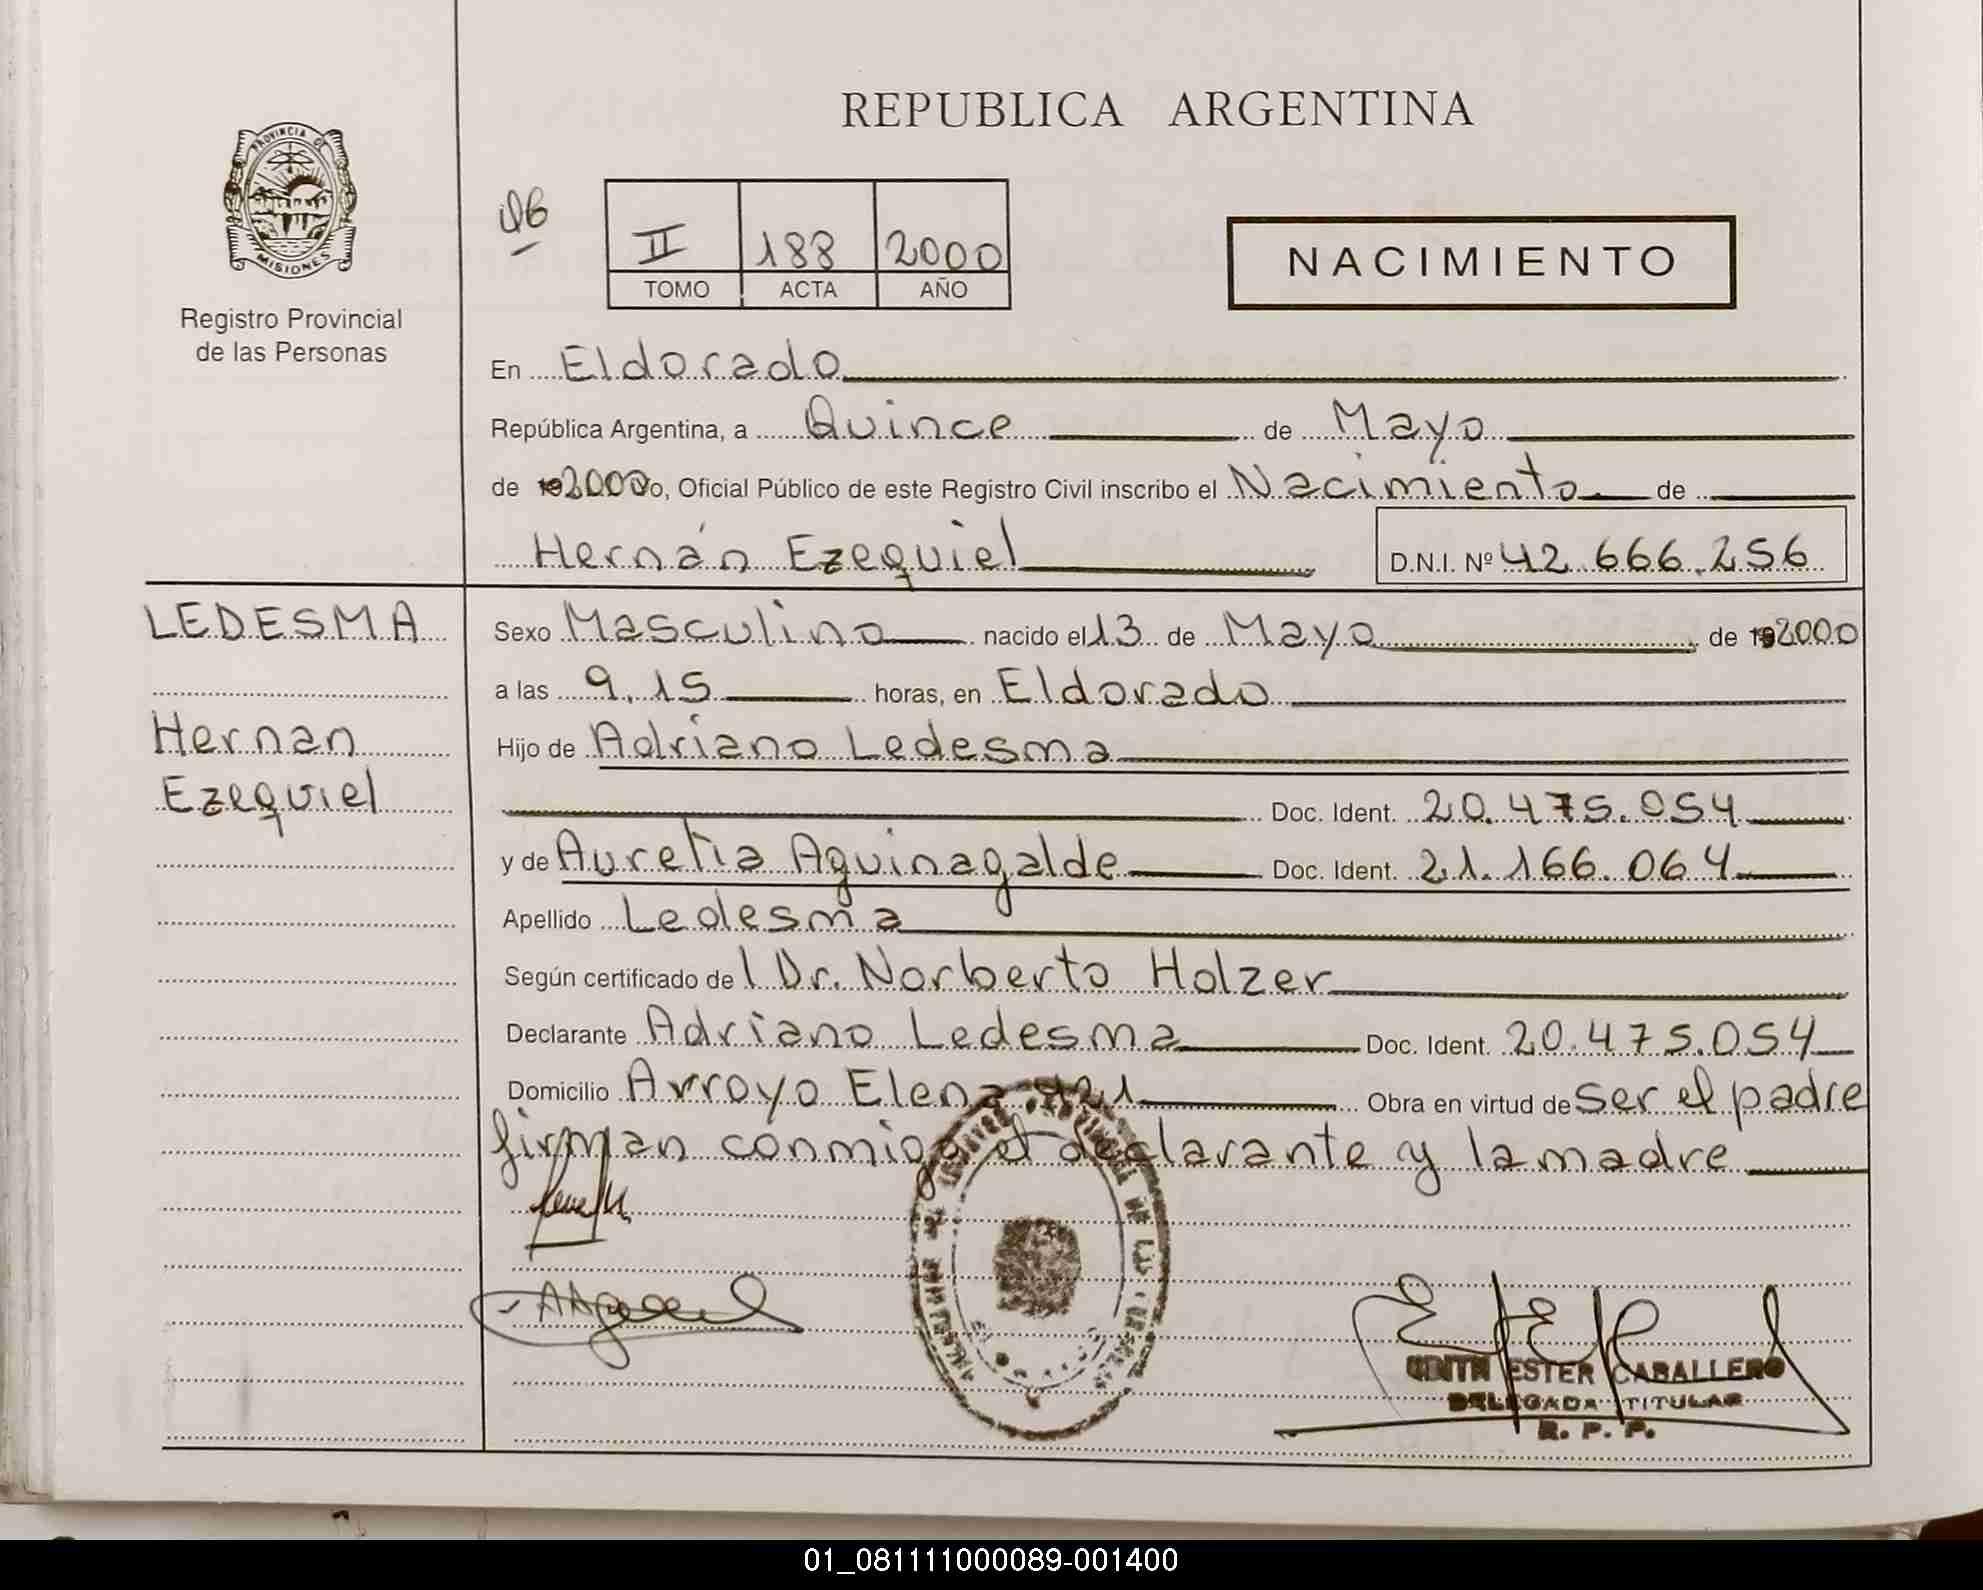 REPUBLICA ARGENTINA
PROVINCIA DE
MISIONES
Registro Provincial
de las Personas
II 188 2000
TOMO ACTA AÑO
NACIMIENTO
En Eldorado
República Argentina, a Quince de Mayo
de 2000, Oficial Público de este Registro Civil inscribo el Nacimiento de
Hernán Ezequiel D.N.I. Nº 42.666.256
LEDESMA
Hernan
Ezequiel
Sexo Masculino nacido el 13 de Mayo de 2000
a las 9.15 horas, en Eldorado
Hijo de Adriano Ledesma
Doc. Ident. 20.475.054
y de Aurelia Aguinagalde Doc. Ident. 21.166.064
Apellido Ledesma
Según certificado de l Dr. Norberto Holzer
Declarante Adriano Ledesma Doc. Ident. 20.475.054
Domicilio Arroyo Elena Obra en virtud de Ser el padre
firman conmigo el declarante y la madre
ESTER CABALLERO
DELEGADA TITULAR
R. P. P.
01_081111000089-001400